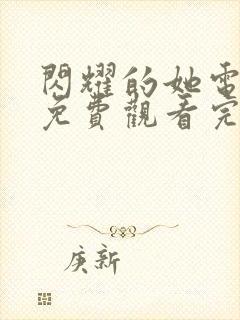 閃耀的她電
免費觀看完
庚新